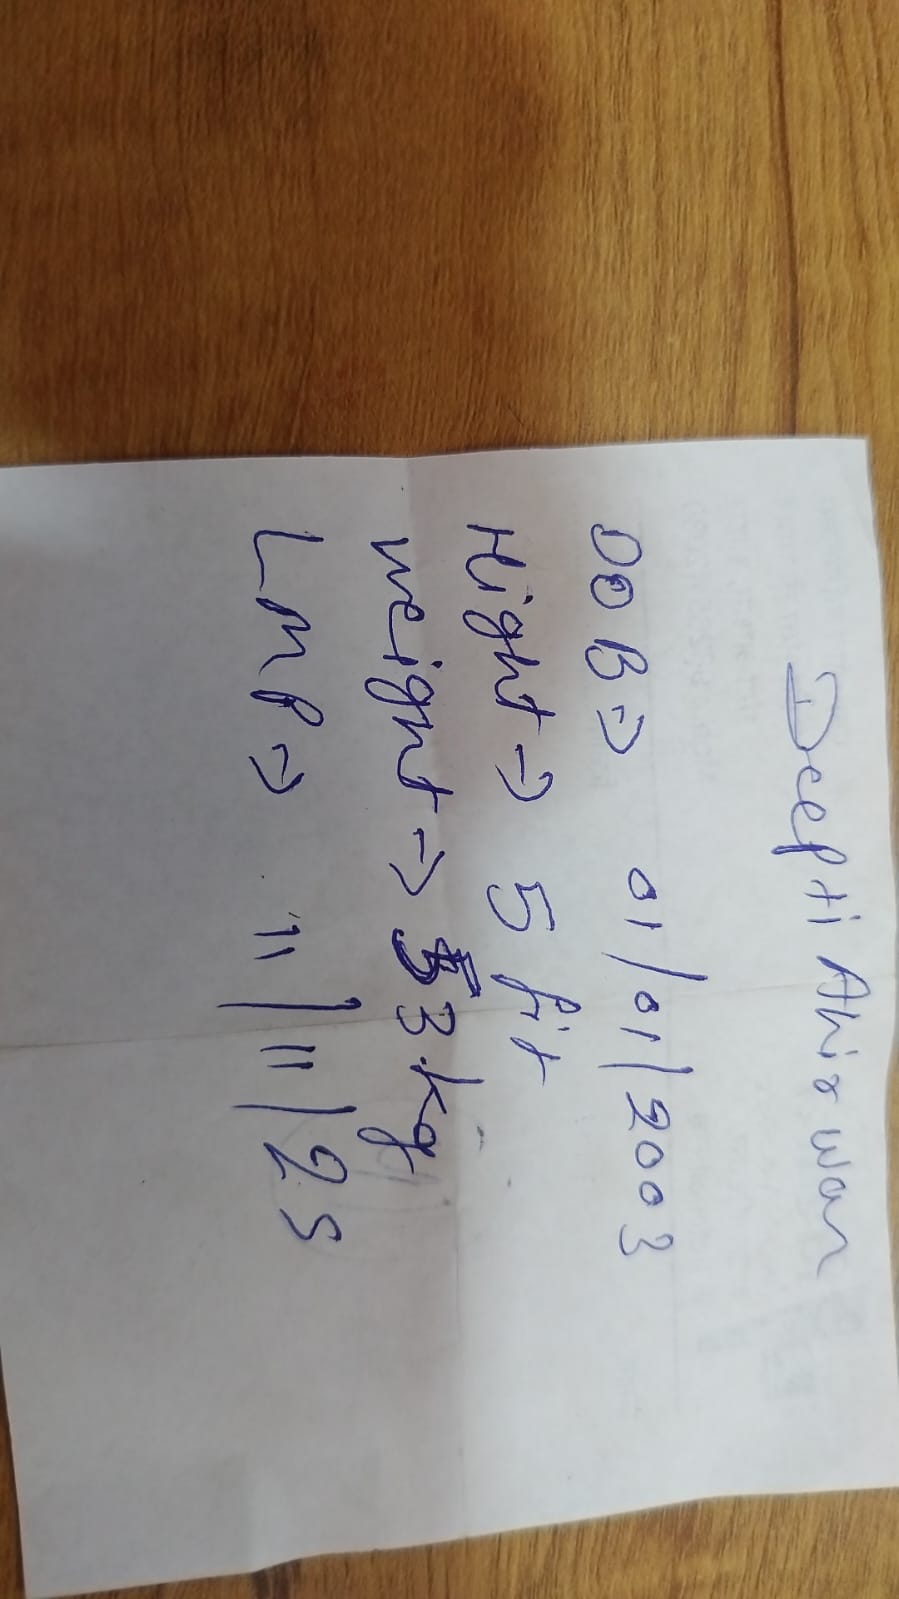 Deepti Ahirwar
DOB → 01/01/2003
Hight → 5 fit
weight → 53 kg
LMP → 11/11/25